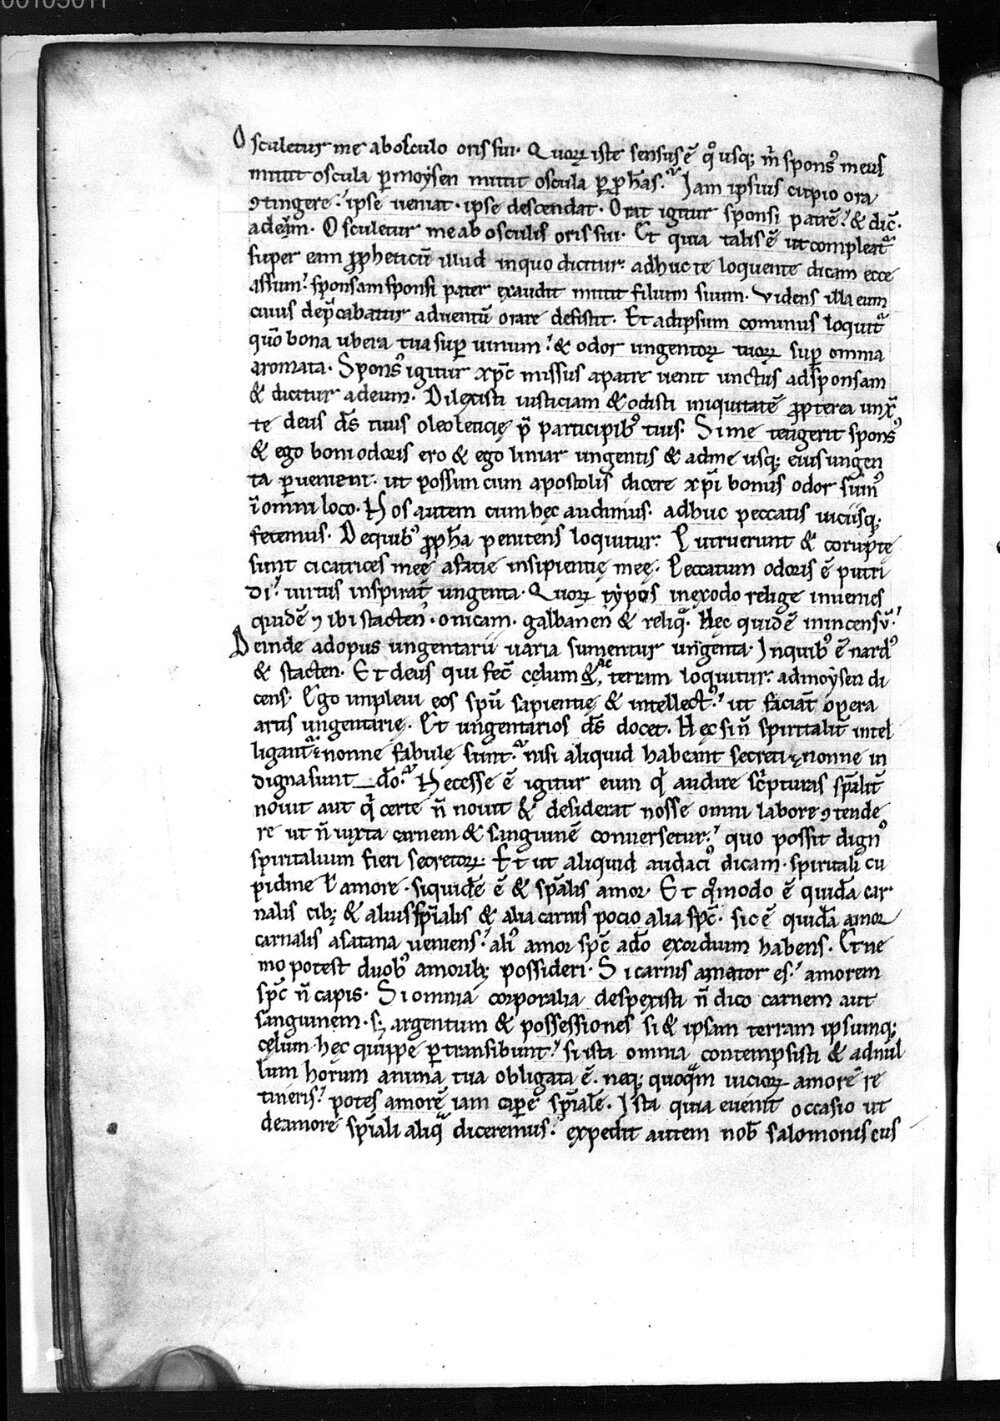 00105011
Osculetur me abosculo oris sui· Quoꝝ iste sensus ē qͦ usq; m̄ sponsꝰ meus
mittit oscula ꝑmoysen mittit oscula ꝑꝓphꝭas· Iam ipsius cupio ora
ꝯtingere· ipse ueniat· ipse descendat· Orat igitur sponsi patrē· & dic̄·
adeum· Osculetur meab osculis oris sui· Et quia talis ē ut compleat᷑
super eam ꝓpheticū illud inquo dicitur· adhuc te loquente dicam ecce
assum· sponsam sponsi pater exaudit mittit filium suum· Videns illa eum
cuius dep̄cabatur aduentū orare desistit· Et adipsum cominus loquit᷑
qm̄ bona ubera tua suꝑ uinum· & odor ungentoꝝ tuoꝝ suꝑ omnia
aromata· Sponsꝰ igitur xp̄c missus apatre uenit unctus adsponsam
& dicitur adeum· Dilexisti iusticiam & odisti iniquitatē ꝓpterea unx̄
te deus ds̄ tuus oleoleticię p̄ participibꝰ tuis· Sime tetigerit sponsꝰ
& ego boni odoris ero & ego liniar ungentis & adme usq; eius ungen
ta ꝑuenient· ut possim cum apostolis dicere xp̄i bonus odor sumꝰ
ī omni loco· Nos autem cum hęc audimus· adhuc peccatis uiciisq;
fetemus· Dequibꝰ ꝓph̄a penitens loquitur· Putruerunt & corruptę
sunt cicatrices meę afacie insipientię meę· Peccatum odoris ē putri
di· uirtus inspirat ungenta· Quoꝝ typos inexodo relige inuenies
quidē ꝯ ibi stacten· onicam· galbanen & reliq̄· Hęc quidē inincensū·
Deinde adopus ungentarii uaria sumentur ungenta· Inquibꝰ ē nardꝰ
& stacten· Et deus qui fec̄ cęlum & ac terram loquitur· admoysen di
cens· Ego impleui eos sp̄u sapientię & intellectꝰ· ut faciant opera
artis ungentarię· Et ungentarios ds̄ docet· Hęc si n̄ spiritalit̄ intel
ligant᷑· nonne fabulę sunt· nisi aliquid habeant secreti· nonne in
digna sunt do· Necesse ē igitur eum q̄ audire sc̄pturas sp̄alit̄
nouit aut q̄ certe n̄ nouit & desiderat nosse omni labore ꝯtende
re ut n̄ iuxta carnem & sanguinē conuersetur· quo possit dignꝰ
spiritalium fieri secretoꝝ· Et ut aliquid audaciꝰ dicam· spiritali cu
pidine ł amore· siquidē ē & sp̄alis amor· Et qm̄odo ē quidā car
nalis cibꝰ & alius sp̄ialis & alia carnis pocio alia sp̄c· sic ē quidā amor
carnalis asatana ueniens· aliꝰ amor sp̄c ado exordium habens· Et ne
mo potest duobꝰ amoribꝰ possideri· Si carnis amator es· amorem
sp̄c n̄ capis· Si omnia corporalia despexisti n̄ dico carnem aut
sanguinem· s; argentum & possessiones si & ipsam terram ipsumq;
cęlum· hęc quippe ꝑtransibunt· si ista omnia contempsisti & adnul
lum horum anima tua obligata ē· neq; quoqm̄ uicioꝝ amorē re
tineris· potes amorē iam capere sp̄iale· Ista quia euenit occasio ut
deamore sp̄iali aliq̄ diceremus· expedit autem nob̄ salomonis cus